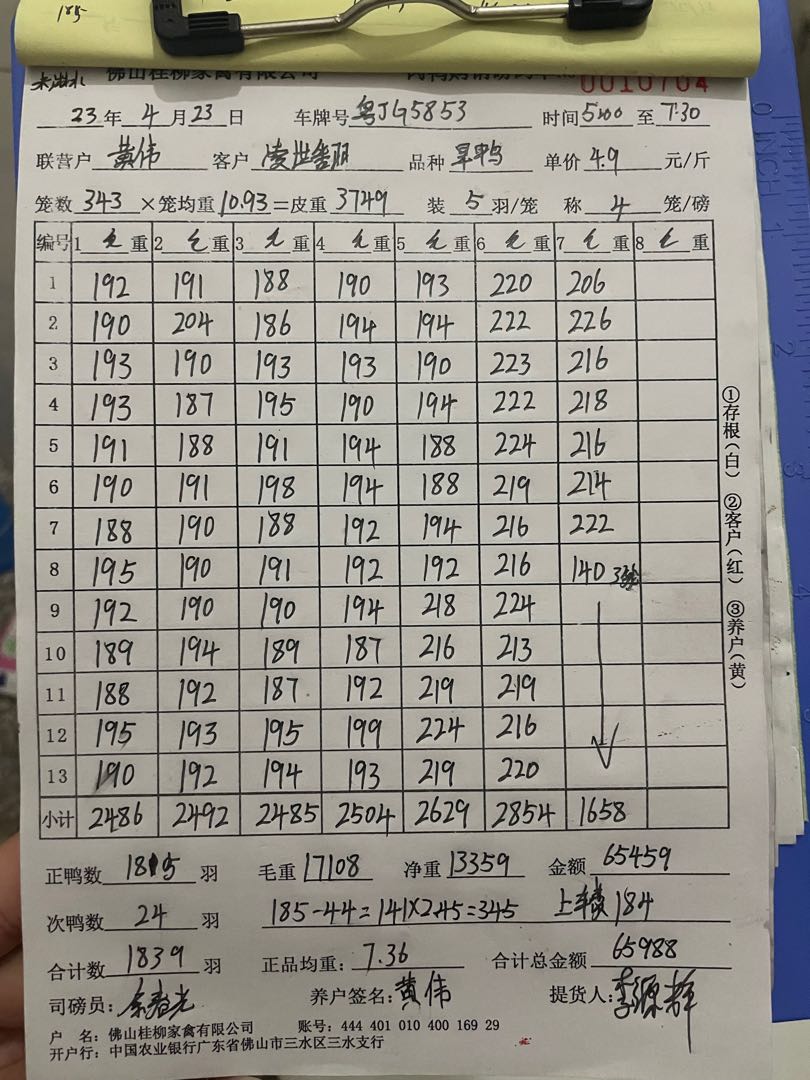 185
未淋水 佛山桂柳家禽有限公司 0010704
23年4月23日 车牌号粤JG5853 时间5:00至7:30
联营户黄伟 客户 品种旱鸭 单价4.9元/斤
笼数343×笼均重10.93=皮重3749 装5羽/笼 称4笼/磅
编号 1毛重 2毛重 3毛重 4毛重 5毛重 6毛重 7毛重 8毛重
1 192 191 188 190 193 220 206
2 190 204 186 194 194 222 226
3 193 190 193 193 190 223 216
4 193 187 195 190 194 222 218
5 191 188 191 194 188 224 216
6 190 191 198 194 188 219 214
7 188 190 188 192 194 216 222
8 195 190 191 192 192 216 140 3笼
9 192 190 190 194 218 224
10 189 194 189 187 216 213
11 188 192 187 192 219 219
12 195 193 195 199 224 216
13 190 192 194 193 219 220
小计 2486 2492 2485 2504 2629 2854 1658
正鸭数1815羽 毛重17108 净重13359 金额65459
次鸭数24羽 185-44=141×2.45=345 上车费184
合计数1839羽 正品均重:7.36 合计总金额65988
司磅员:余春光 养户签名:黄伟 提货人:李源辉
户 名:佛山桂柳家禽有限公司 账号:444 401 010 400 169 29
开户行:中国农业银行广东省佛山市三水区三水支行
①存根(白) ②客户(红) ③养户(黄)
0 INCH 1 2 3